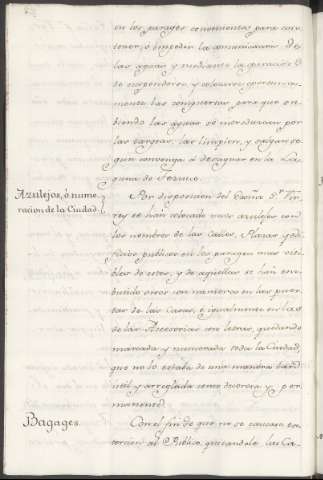 en los parages convenientes para con-
tener, ó impedir la comunicacion de
las aguas, y mediante la operacion
de suspenderse y colocarse oportuna-
mente las compuertas para que su-
biendo las aguas se introduzcan por
las targeas, las limpien, y caygan se-
gun convenga á desaguar en la La-
guna de Tezcuco.
Azulejos, ó nume-
racion de la Ciudad.
Por disposicion del Exmo. Sr. Vir-
rey se han colocado unos azulejos con
los nombres de las Calles, Plazas y edi-
ficios publicos en los parages mas visi-
bles de estos, y de aquellas se han em-
butido otros con numeros en las puer-
tas de las Casas, é igualmente en las
de las Accesorias con letras, quedando
marcada y numerada toda la Ciudad,
que no lo estaba de una manera tan
util y arreglada como decorosa y per-
manente.
Bagages.
Con el fin de que no se causara ex-
torcion al Publico, quitandole los Ca-